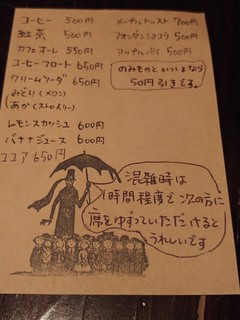 コーヒー 500円
紅茶 500円
カフェオーレ 550円
コーヒーフロート 650円
クリームソーダ 650円
みどり(メロン)
あか(ストロベリー)
レモンスカッシュ 600円
バナナジュース 600円
ココア 650円
メープルトースト 700円
フォンダンショコラ 500円
アップルパイ 500円
のみものといっしょなら
50円引きです。
混雑時は
1時間程度で次の方に
席をゆずっていただけると
うれしいです